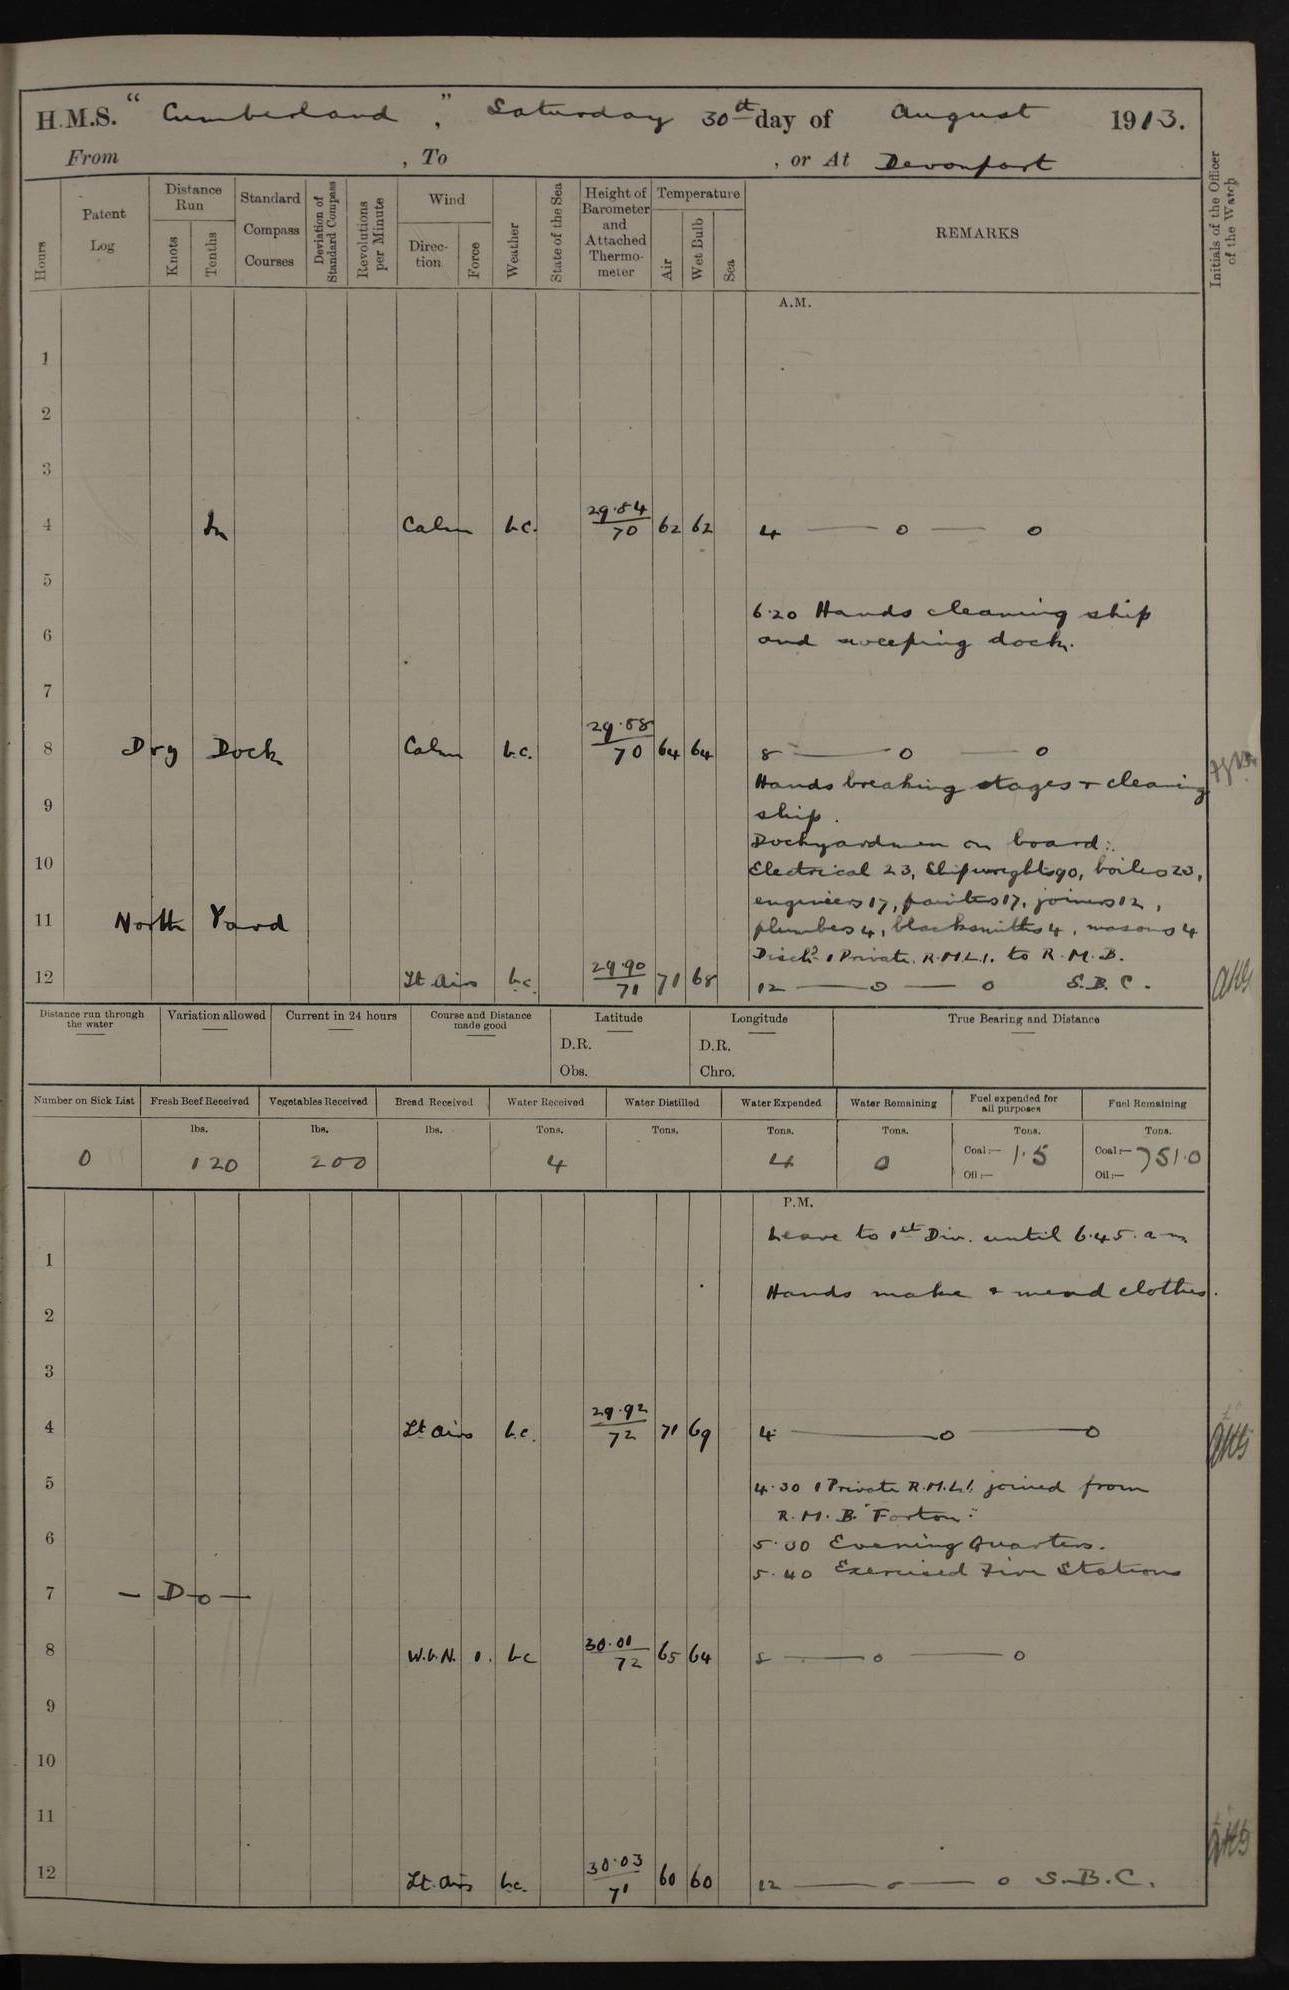 H.M.S. "Cumberland", Saturday 30th day of August 1913.
From , To , or At Devonport
Hours
Patent Log
Distance Run
Knots
Tenths
Standard Compass Courses
Deviation of Standard Compass
Revolutions per Minute
Wind
Direction
Force
Weather
State of the Sea
Height of Barometer and Attached Thermometer
Temperature
Air
Wet Bulb
Sea
REMARKS
Initials of the Officer of the Watch
A.M.
1
2
3
4 In Calm b.c. 29.84 70 62 62 4 — o — o
5
6.20 Hands cleaning ship
6 and sweeping dock.
7
8 Dry Dock Calm b.c. 29.88 70 64 64 8 — o — o
Hands breaking stages + cleaning
9 ship.
Dockyardmen on board:
10 Electrical 23, Shipwrights 90, boilers 23,
engineers 17, painters 17, joiners 12,
11 North Yard plumbers 4, blacksmiths 4, masons 4
Disch'd 1 Private. R.M.L.I. to R.M.B.
12 Lt Airs b.c. 29.90 71 71 68 12 — o — o S.B.C.
Distance run through the water
Variation allowed
Current in 24 hours
Course and Distance made good
Latitude
D.R.
Obs.
Longitude
D.R.
Chro.
True Bearing and Distance
Number on Sick List 0
Fresh Beef Received lbs. 120
Vegetables Received lbs. 200
Bread Received lbs.
Water Received Tons. 4
Water Distilled Tons.
Water Expended Tons. 4
Water Remaining Tons. 0
Fuel expended for all purposes Tons. Coal:— 15 Oil:—
Fuel Remaining Tons. Coal:— 751.0 Oil:—
P.M.
Leave to 1st Div. until 6.45. a.m
1
Hands make + mend clothes.
2
3
4 Lt Airs b.c. 29.92 72 71 69 4 — o — o
5 4.30 1 Private R.M.L.I. joined from
R.M.B. "Forton."
6 5.30 Evening Quarters.
5.40 Exercised Fire Stations
7 — Do —
8 W.b.N. 1. b.c 30.01 72 65 64 8 — o — o
9
10
11
12 Lt. Airs b.c. 30.03 71 60 60 12 — o — o S.B.C.